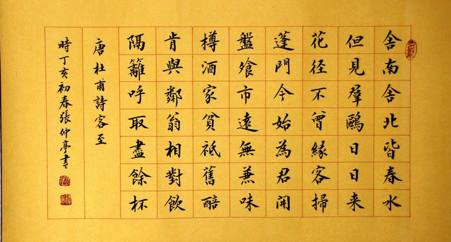 舍南舍北皆春水
但見羣鷗日日来
花径不曾緣客掃
蓬門今始為君開
盤飧市遠無兼味
樽酒家貧祗舊醅
肯與鄰翁相對飲
隔籬呼取盡餘杯
唐杜甫詩客至
時丁亥初春張仲亭書